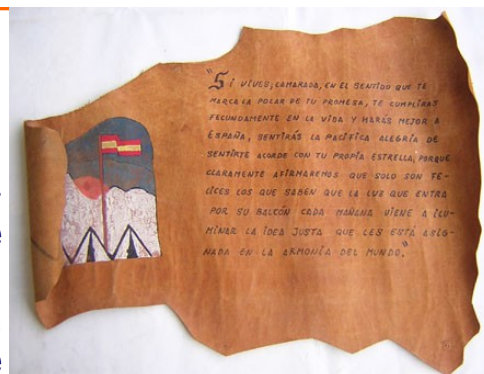 "Si vives, camarada, en el sentido que te
marca la polar de tu promesa, te cumplirás
fecundamente en la vida y harás mejor a
España, sentirás la pacífica alegría de
sentirte acorde con tu propia estrella, porque
claramente afirmaremos que solo son fe-
lices los que saben que la luz que entra
por su balcón cada mañana viene a ilu-
minar la idea justa que les está asig-
nada en la armonía del mundo."